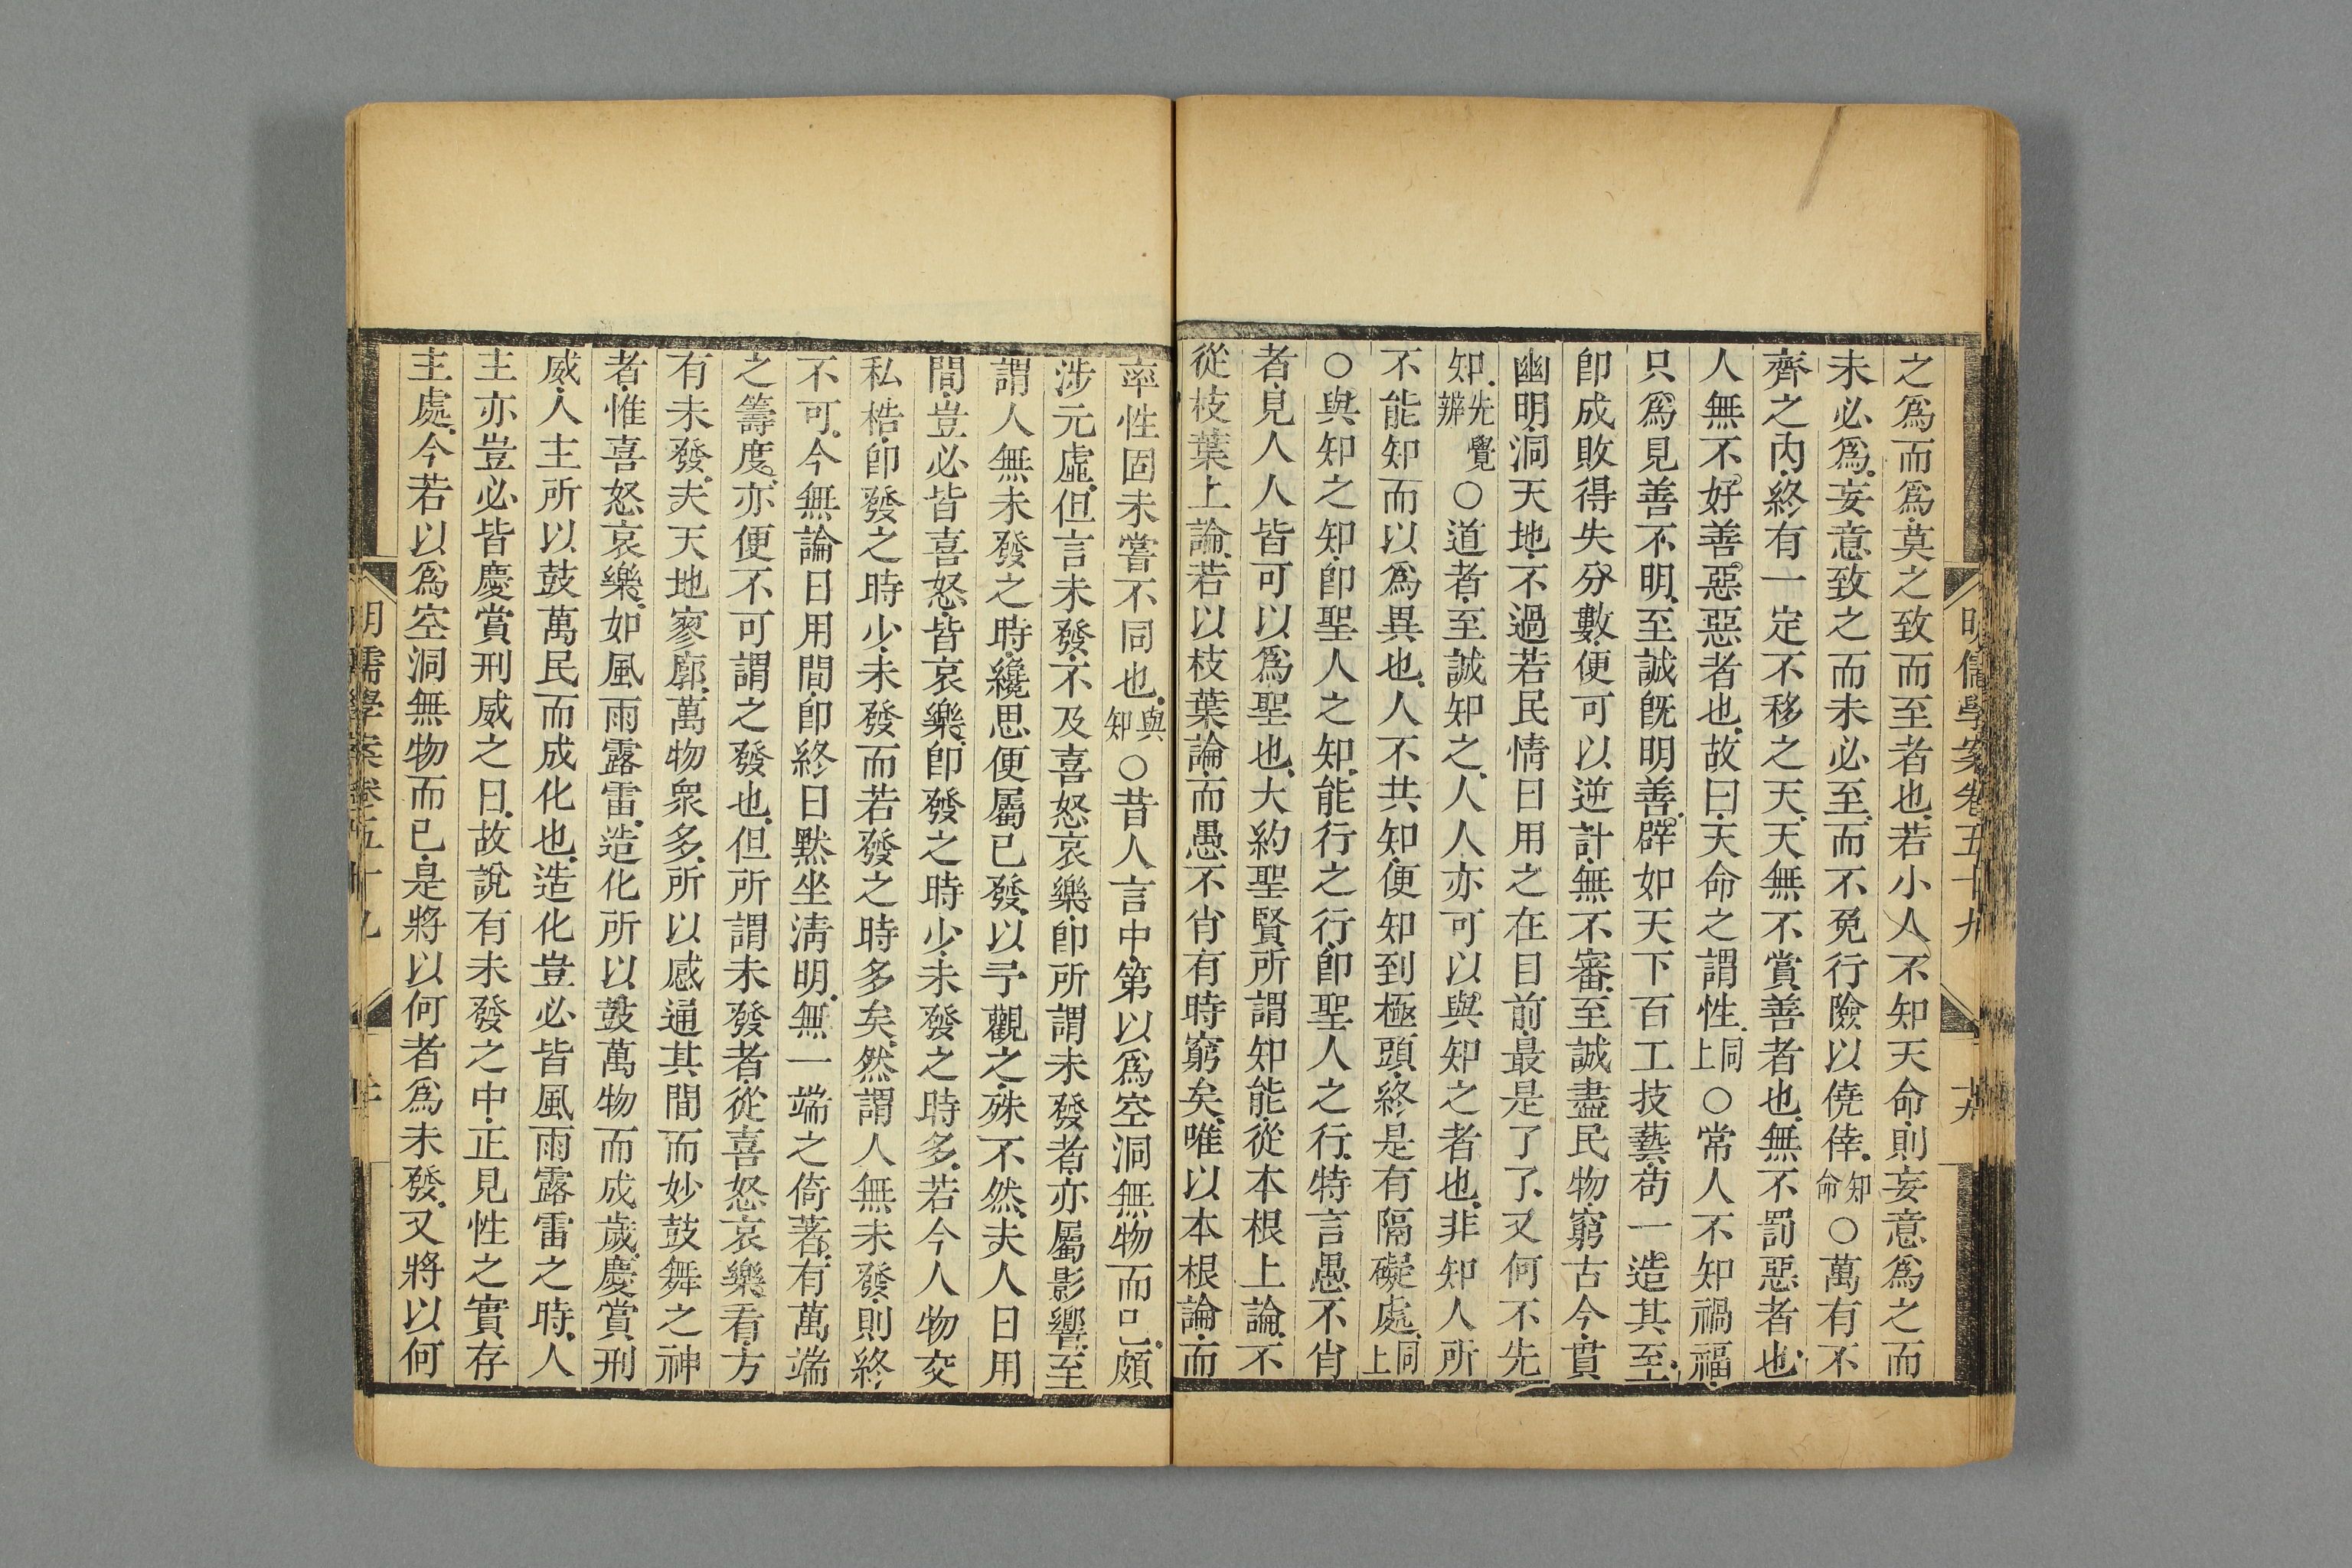 明儒學案卷五十九
之爲而爲莫之致而至者也若小人不知天命則妄意爲之而
未必爲妄意致之而未必至而不免行險以僥倖知命○萬有不
齊之內終有一定不移之天天無不賞善者也無不罰惡者也
人無不好善惡惡者也故曰天命之謂性同上○常人不知禍福
只爲見善不明至誠旣明善辟如天下百工技藝苟一造其至
卽成敗得失分數便可以逆計無不審至誠盡民物窮古今貫
幽明洞天地不過若民情日用之在目前最是了了又何不先
知先覺辨○道者至誠知之人人亦可以與知之者也非知人所
不能知而以爲異也人不共知便知到極頭終是有隔礙處同上
○與知之知卽聖人之知能行之行卽聖人之行特言愚不肖
者見人人皆可以爲聖也大約聖賢所謂知能從本根上論不
從枝葉上論若以枝葉論而愚不肖有時窮矣唯以本根論而
率性固未嘗不同也與知○昔人言中第以爲空洞無物而已頗
涉元虛但言未發不及喜怒哀樂卽所謂未發者亦屬影響至
謂人無未發之時纔思便屬已發以予觀之殊不然夫人日用
間豈必皆喜怒皆哀樂卽發之時少未發之時多若今人物交
私梏卽發之時少未發而若發之時多矣然謂人無未發則終
不可今無論日用間卽終日默坐淸明無一端之倚著有萬端
之籌度亦便不可謂之發也但所謂未發者從喜怒哀樂看方
有未發夫天地寥廓萬物衆多所以感通其間而妙鼓舞之神
者惟喜怒哀樂如風雨露雷造化所以鼓萬物而成歲慶賞刑
威人主所以鼓萬民而成化也造化豈必皆風雨露雷之時人
主亦豈必皆慶賞刑威之日故說有未發之中正見性之實存
主處今若以爲空洞無物而已是將以何者爲未發又將以何
明儒學案卷五十九